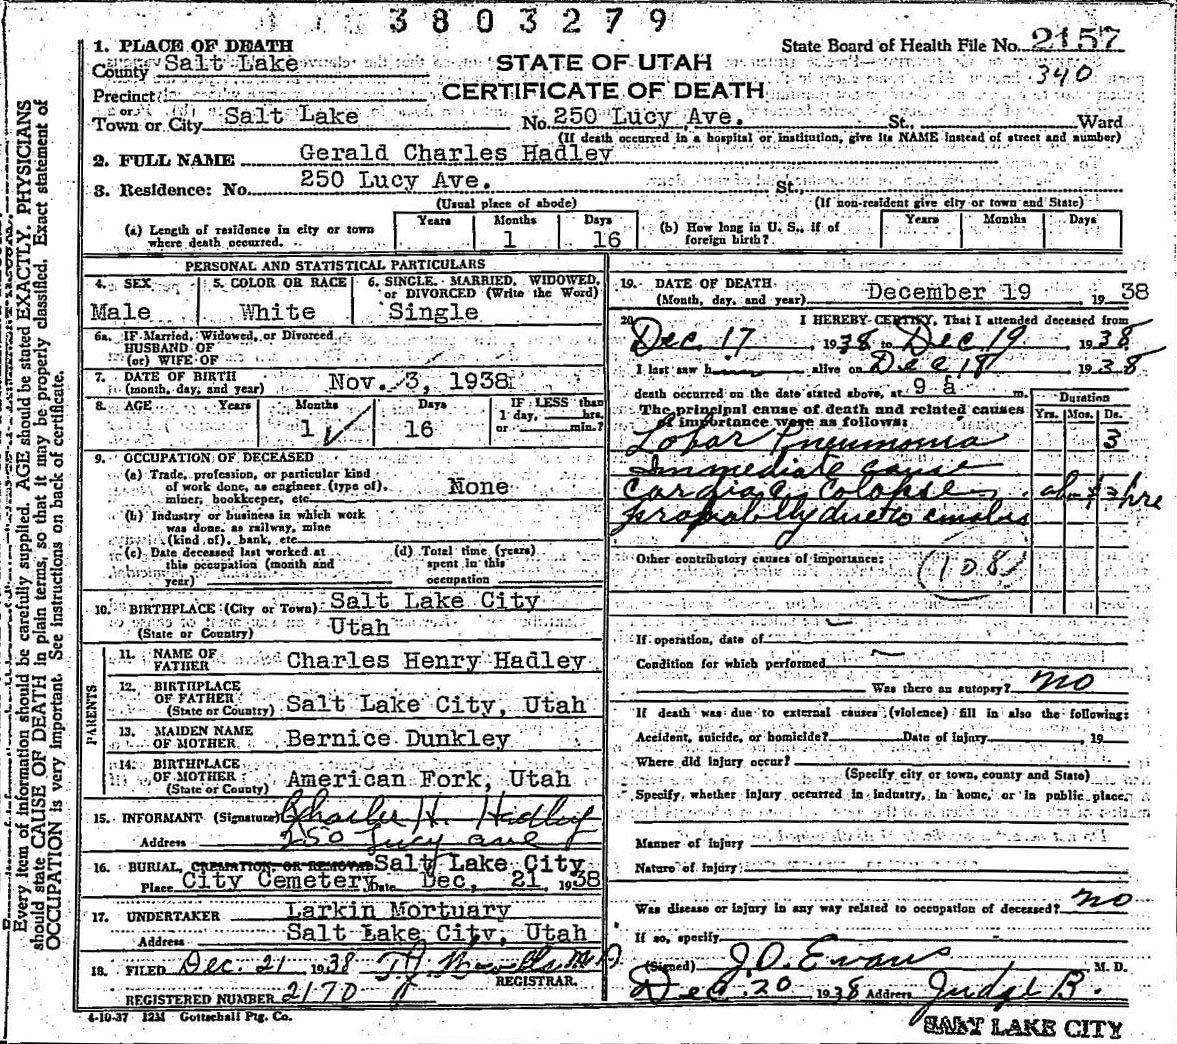 3803279
1. PLACE OF DEATH
County Salt Lake
Precinct
or
Town or City Salt Lake
STATE OF UTAH
CERTIFICATE OF DEATH
State Board of Health File No. 2157
340
No. 250 Lucy Ave. St., Ward
(If death occurred in a hospital or institution, give its NAME instead of street and number)
2. FULL NAME Gerald Charles Hadley
3. Residence: No. 250 Lucy Ave. St.,
(Usual place of abode) (If non-resident give city or town and State)
(a) Length of residence in city or town where death occurred. Years Months 1 Days 16
(b) How long in U. S., if of foreign birth? Years Months Days
PERSONAL AND STATISTICAL PARTICULARS
4. SEX Male
5. COLOR OR RACE White
6. SINGLE, MARRIED, WIDOWED, or DIVORCED (Write the Word) Single
6a. IF Married, Widowed, or Divorced
HUSBAND OF
(or) WIFE OF
7. DATE OF BIRTH
(month, day, and year) Nov. 3, 1938
8. AGE Years Months 1 Days 16 IF LESS than 1 day, hrs. or min.?
9. OCCUPATION OF DECEASED
(a) Trade, profession, or particular kind
of work done, as engineer (type of),
miner, bookkeeper, etc. None
(b) Industry or business in which work
was done, as railway, mine
(kind of), bank, etc.
(c) Date deceased last worked at
this occupation (month and
year)
(d) Total time (years)
spent in this
occupation
10. BIRTHPLACE (City or Town) Salt Lake City
(State or Country) Utah
PARENTS
11. NAME OF FATHER Charles Henry Hadley
12. BIRTHPLACE OF FATHER (State or Country) Salt Lake City, Utah
13. MAIDEN NAME OF MOTHER Bernice Dunkley
14. BIRTHPLACE OF MOTHER (State or County) American Fork, Utah
15. INFORMANT (Signature) Charles H. Hadley
Address 250 Lucy ave
16. BURIAL, CREMATION, OR REMOVAL Salt Lake City
Place City Cemetery Date Dec, 21 1938
17. UNDERTAKER Larkin Mortuary
Address Salt Lake City, Utah
18. FILED Dec. 21 1938
REGISTRAR.
REGISTERED NUMBER 2170
4-10-37 12M Gottschall Ptg. Co.
19. DATE OF DEATH
(Month, day, and year) December 19, 1938
20. I HEREBY CERTIFY, That I attended deceased from
Dec. 17, 1938 to Dec 19 1938.
I last saw h im alive on Dec 18 1938
death occurred on the date stated above, at 9 a m.
The principal cause of death and related causes
of importance were as follows:
Duration
Yrs. Mos. Ds.
Lobar Pneumonia 3
Immediate cause
Cardiac Colapse
probablly due to
Other contributory causes of importance:
(108)
If operation, date of
Condition for which performed
Was there an autopsy? no
If death was due to external causes (violence) fill in also the following:
Accident, suicide, or homicide? Date of injury 19
Where did injury occur?
(Specify city or town, county and State)
Specify whether injury occurred in industry, in home, or in public place.
Manner of injury
Nature of injury
Was disease or injury in any way related to occupation of deceased? no
If so, specify
(Signed) J.O. Evans M. D.
Dec. 20 1938 Address Judge B.
SALT LAKE CITY
Every item of information should be carefully supplied. AGE should be stated EXACTLY. PHYSICIANS
should state CAUSE OF DEATH in plain terms, so that it may be properly classified. Exact statement of
OCCUPATION is very important. See instructions on back of certificate.